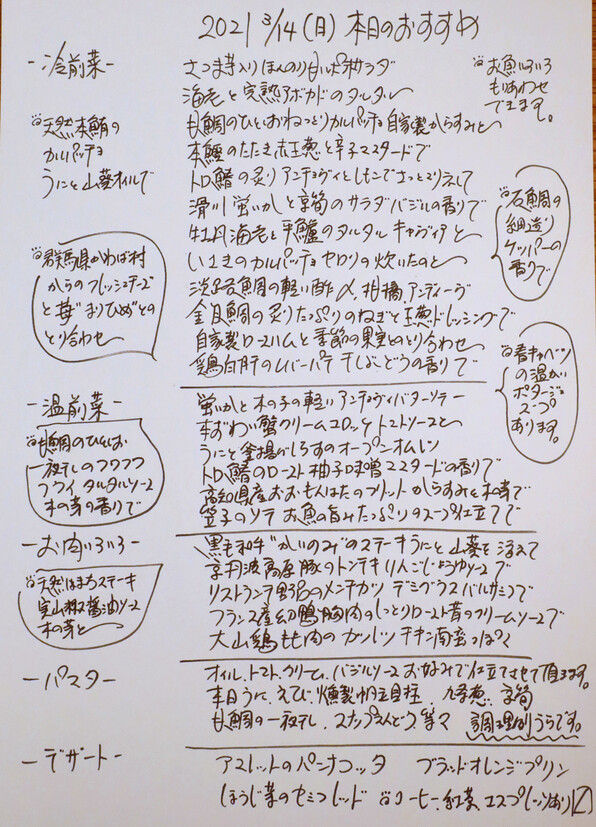 2021 3/14(日) 本日のおすすめ
-冷前菜-
さつま芋入りほんのり甘いポテサラダ
海老と完熟アボカドのタルタル
甘鯛のひといおねっとりカルパッチョ自家製からすみと
本鰹のたたき赤玉葱と辛子マスタードで
トロ鰆の炙り アンチョヴィとレモンでさっと
滑川蛍いかと筍のサラダバジルの香りで
牡丹海老と平鱸のタルタル キャヴィアと
いさきのカルパッチョセロリの炊いたのと
淡路産魚鯛の軽い酢〆、柑橘、アンディーヴ
金目鯛の炙りたっぷりのねぎと玉葱ドレッシングで
自家製ロースハムと季節の果実とのとり合わせ
鶏白肝のレバーパテ 干しぶどうの香りで
お魚いろいろ
もりあわせ
できます。
天然本鮪の
カルパッチョ
うにと山葵オイルで
石鯛の
細造り
ケッパーの
香りで
群馬県かわば村
からのフレッシュチーズ
と苺"まりひめ"との
とり合わせ
春キャベツ
の温かい
ポタージュ
スープ
あります。
-温前菜-
蛍いかと木の子の軽いアンチョヴィバターソテー
本ずわい蟹クリームコロッケトマトソースと
うにと釜揚げしらすのオープンオムレツ
トロ鰆のロースト 柚子味噌マスタードの香りで
高知県産おおもんはたのフリットからすみと木の芽で
笠子のソテーお魚の旨みたっぷりのスープ仕立てで
甘鯛のひといお
一夜干しのフワフワ
フライ タルタルソース
木の芽の香りで
-お肉いろいろ-
黒毛和牛"かいのみ"のステーキうにと山葵を添えて
京丹波高原豚のトンテキりんごじょうゆソースで
リストランテ野呂のメンチカツ デミグラスバルサミコで
フランス産幼鴨胸肉のしっとりロースト昔のクリームソースで
大山鶏もも肉のガツレツ チキン南蛮っぽく
天然はまちステーキ
実山椒醤油ソース
木の芽と
-パスタ-
オイル、トマト、クリーム、バジルソースお好みで仕立てさせて頂きます。
本日うに、えび、燻製帆立貝柱、九条葱、筍
甘鯛の一夜干し、スナップえんどう、等々 調理例うらです。
-デザート-
アメレットのパンナコッタ ブラッドオレンジプリン
ほうじ茶のセミフレッド コーヒー、紅茶、エスプレッソあり